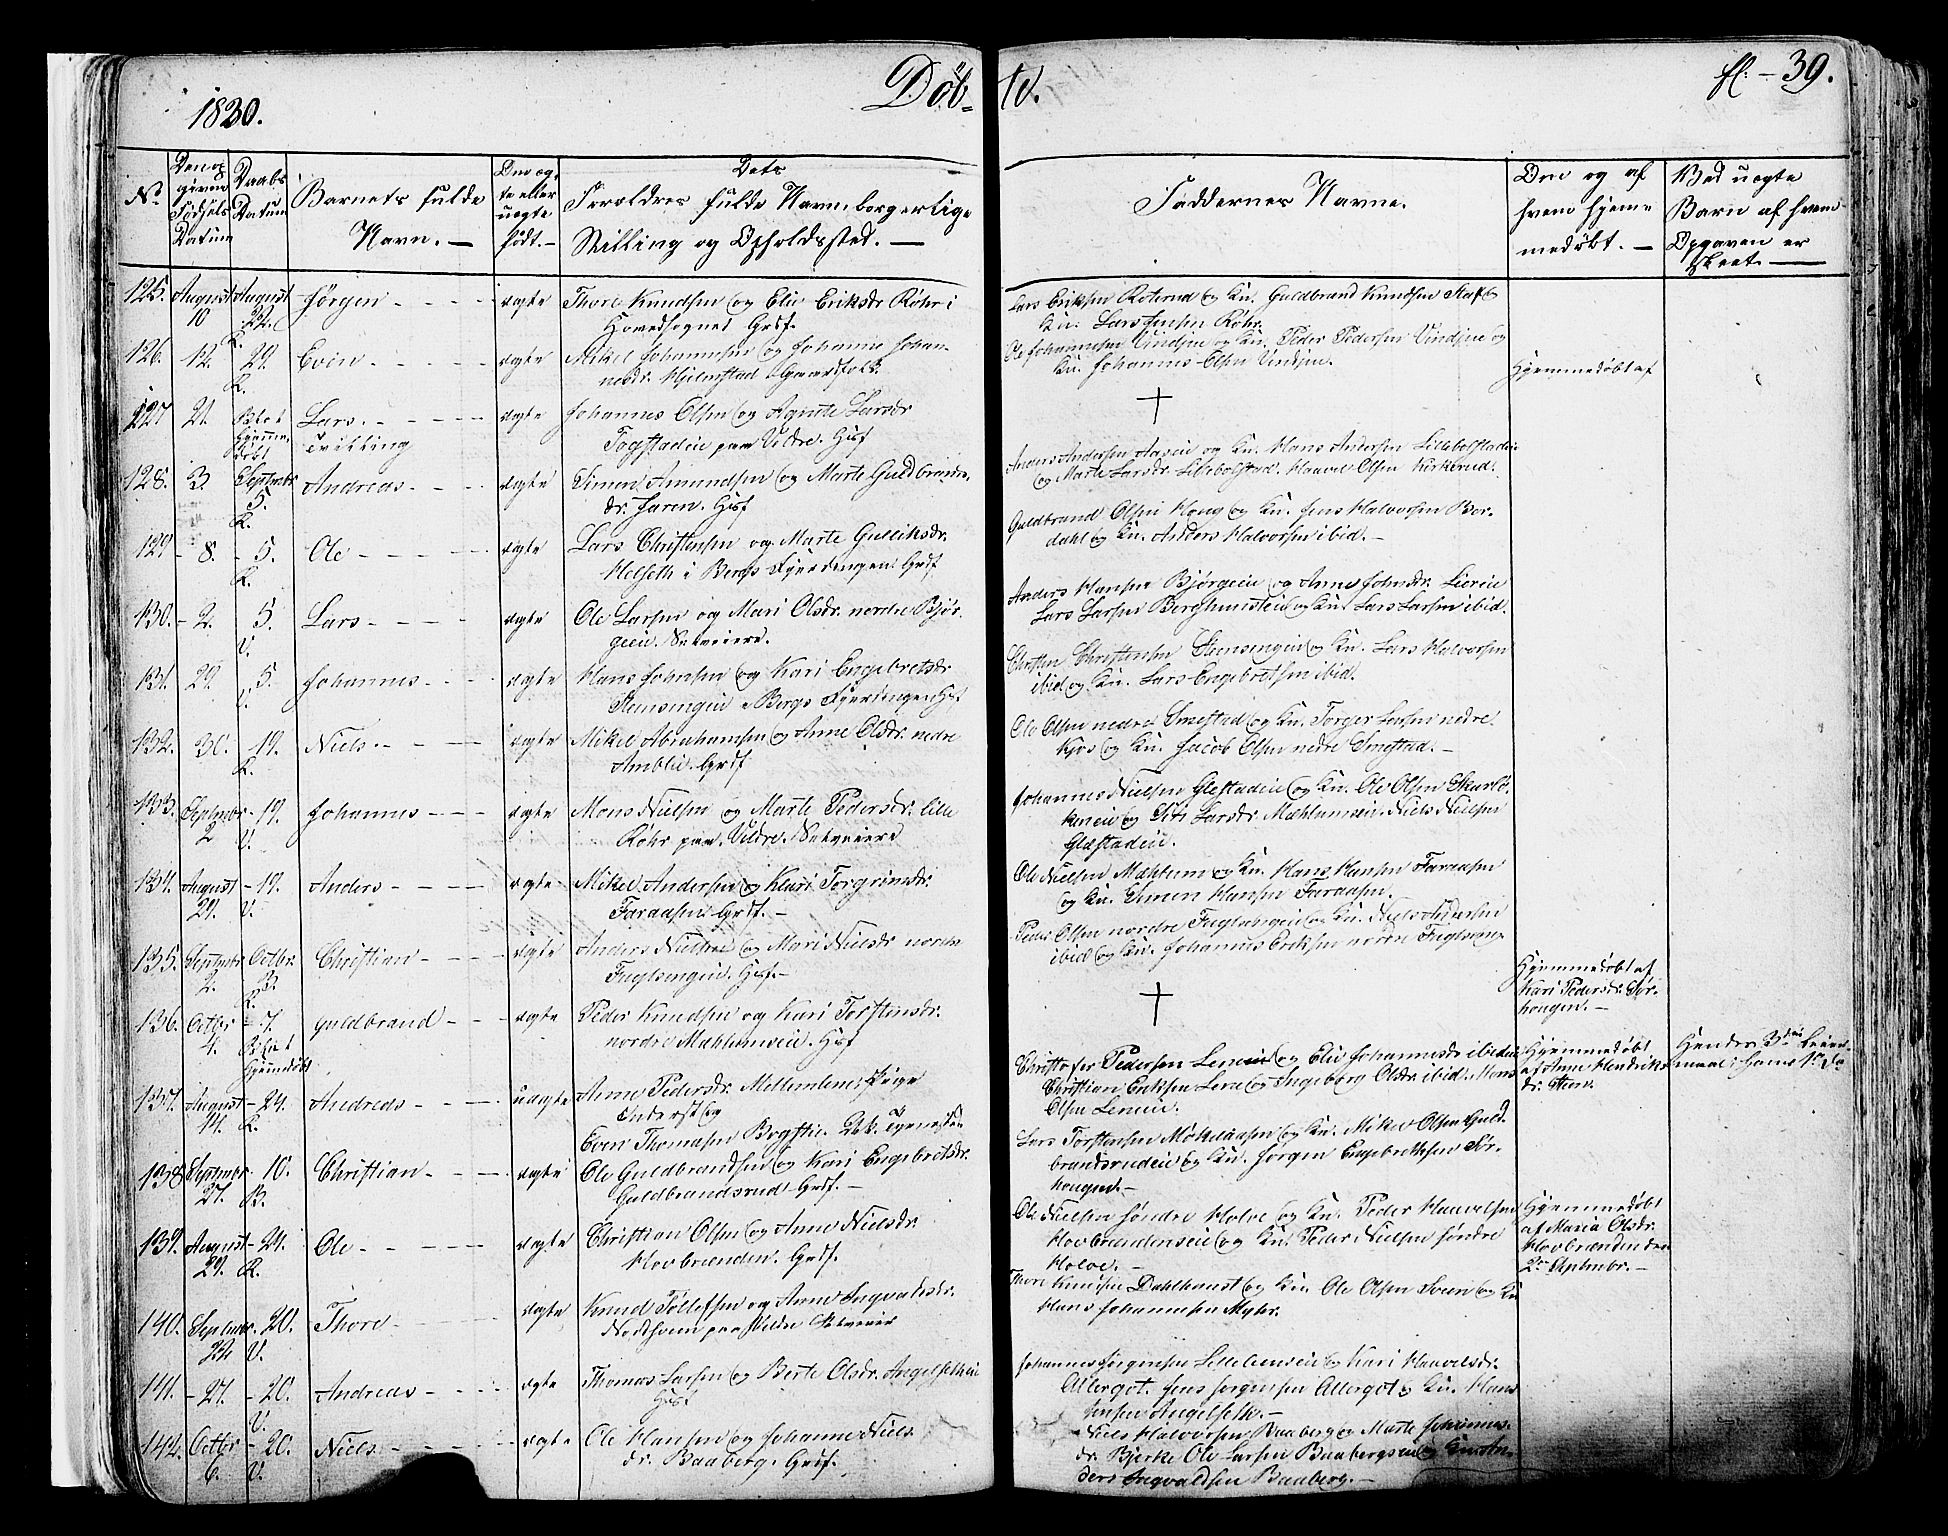 1830. Døb- te. fl: - 39.
No
Den opgivne Fødsels Datum
Daabs Datum
Barnets fulde Navn. —
Om ægte eller uægte født. —
Dets Forældres fulde Navn borgerlige Stilling og Opholdssted. —
Faddernes Navne.
Om og af hvem hjemmedøbt. —
Ved uægte Barn af hvem Opgaven er skeet. —
125. August 10 August 22. K. Jørgen - - - - ægte Thore Knudsen og Elie Eriksdr Röhr i
Hovedsognet Grdf.
Lars Eriksen Roterud og Kn. Guldbrand Knudsen
Kn: Lars Jensen Röhr.
126. 12. 29. K. Even - - - - - ægte Mikel Johannesen og Johanne Johan-
nesdr. Hjelmstad Gaardfolk
Ole Johannesen Vindjue og Kn. Peder Pedersen Vindjue og
Kn: Johannes Olsen Vindjue.
Hjemmedøbt af
127 21. Blot Hjemmedøbt Lars. - - - - ægte Johannes Olsen og Agnete Larsdr
Tvilling
Fogstadeie paa Vildre. Husf
+
128. 3. Septembr 5. K. Andreas - - - ægte Simen Amundsen og Marte Guldbrands-
dr. Faren. Husf
Anders Andersen Aaseie og Kn. Hans Andersen Lillebolstadeie
og Marte Larsdr. Lillebolstad. Haavel Olsen Kirkerud.
129 - 8. - 5. K. Ole - - - - - ægte Lars Christensen og Marte Gulliksdr.
Helseth i Bergs Fjerdingen. Grdf
Guldbrand Olsen Houg og Kn. Jens Halvorsen Ber-
dahl og Kn. Anders Halvorsen ibid. -
130. - 2. 5. V. Lars - - - - ægte Ole Larsen og Mari Olsdr. nordre Bjør-
geeie. Selveiere.
Anders Hansen Bjørgeeie og Anne Johnsdr. Liereie
Lars Larsen Berghuuseie og Kn: Lars Larsen ibid.
131. 29. 5. V. Johannes - - - ægte Hans Johnsen og Kari Engebretsdr
Stensengeie Bergs Fjerdingen Husf
Christen Christensen Stensengeie og Kn. Lars Halvorsen
ibid og Kn. Lars Engebretsen ibid.
132. 30. 19. K. Niels. - - - - ægte Mikel Abrahamsen og Anne Olsdr. nedre
Amblie. Grdf
Ole Olsen nedre Smestad og Kn. Torger Larsen nedre
Kjos og Kn. Jacob Olsen nedre Smestad. -
133. Septembr 2 - 19. V. Johannes - - - ægte Mons Nielsen og Marte Pedersdr. lille
Röhr paa Vildre. Selveiere
Johannes Nielsen Glæstadeie og Kn. Ole Olsen Skurlö-
keneie og Siri Larsdr. Mæhlumeie. Niels Nielsen
Glæstadeie.
134. August 29. - 19. V. Anders - - - - ægte Mikel Andersen og Kari Torgrimsdr.
Faraasen. Grdf. -
Ole Nielsen Mæhlum og Kn. Hans Hansen Faraasen
og Kn. Simen Hansen Faraasen.
135. Septembr 2. Octbr. 3. K. Christian - - - - ægte Anders Nielsen og Mari Nielsdr nordre
Fuglsengeie. Husf. -
Peder Olsen nordre Fuglsengeie og Kn. Niels Andersen
ibid og Kn. Johannes Eriksen nordre Fuglseng
136. Octbr 4. - 7. Blot Hjemmedøbt Guldbrand - - - ægte Peder Knudsen og Kari Torstensdr.
nordre Mæhlumseie. Husf
+
Hjemmedøbt af
Kari Pedersdr. Sør-
hougen. -
137. August 14. - 24. K. Andreas - - - - uægte Anne Pedersdr. Mellemlene Pige
Enderst og
Even Thomasen Brystie.
Christofer Pedersen Leneeie og Elie Johannesdr ibideie
Christian Eriksen Lene og Ingeborg Olsdr. ibid. Hans
Olsen Leneeie.
Hjemmedøbt
af Anne Hendriks
dr. Steen.
Hendes 3die Leier-
maal: hans 1te Do
138 Septembr 27. - 10. B. Christian - - - ægte Ole Guldbrandsen og Kari Engebretsdr.
Guldbrandsrud Grdf. -
Lars Torstensen Mökelaasen og Kn. Mikel Olsen Guld-
brandsrudeie og Kn. Jørgen Engebrethsen Sør-
hougen. -
139. August 29. - 24. K. Ole - - - - - ægte Christian Olsen og Anne Nielsdr.
Hovbrænden. Grdf.
Ole Nielsen søndre Holve og Kn. Peder Haavelsen
Hovbrændenseie og Kn. Peder Nielsen søndre
Holve. -
Hjemmedøbt
af Maria Olsdr.
Hovbrænden den
2n Septembr. -
140. Septembr. 24 20. V. Thore - - - - ægte Knud Tollefsen og Anne Ingvaldsdr.
paa Vildre Selveier
Thore Knudsen Dahlhaust og Kn. Ole Olsen Sveen og Kn
Hans Johannesen Myhr.
141. - 27. - 20. V. Andreas - - - - ægte Thomas Larsen og Berte Olsdr. Angelsetheie
Husf
Johannes Jørgensen Lilleleneseie og Kari Haavelsdr.
Allergot. Jens Jørgensen Allergot og Kn. Hans
Jensen Angelseth. -
142. Octbr 6. - 20. V. Niels - - - - ægte Ole Hansen og Johanne Niels
dr. Baaberg. Grdf.
Niels Halvorsen Baaberg og Marte Johannes-
dr. Bjerke Ole Larsen Baabergseie og Kn. An-
ders Ingvaldsen Baaberg. -